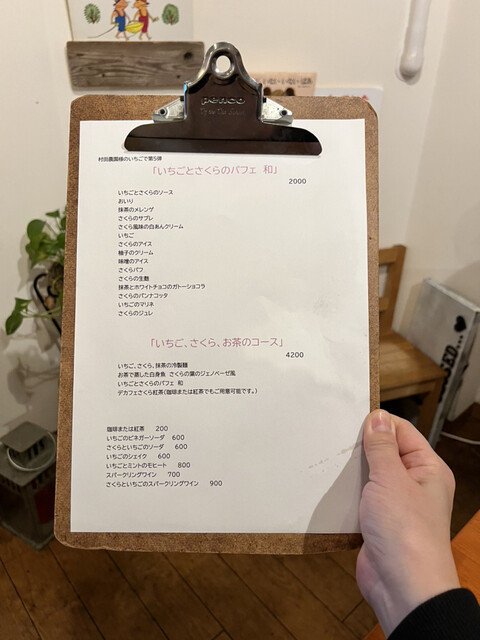 penco
村田農園様のいちごで第5弾
「いちごとさくらのパフェ 和」
2000
いちごとさくらのソース
おいり
抹茶のメレンゲ
さくらのサブレ
さくら風味の白あんクリーム
いちご
さくらのアイス
柚子のクリーム
味噌のアイス
さくらパフ
さくらの生麩
抹茶とホワイトチョコのガトーショコラ
さくらのパンナコッタ
いちごのマリネ
さくらのジュレ
「いちご、さくら、お茶のコース」
4200
いちご、さくら、抹茶の冷製麺
お茶で蒸した白身魚 さくらの葉のジェノベーゼ風
いちごとさくらのパフェ 和
デカフェさくら紅茶(珈琲または紅茶でもご用意可能です。)
珈琲または紅茶 200
いちごのビネガーソーダ 600
さくらといちごのソーダ 600
いちごのシェイク 600
いちごとミントのモヒート 800
スパークリングワイン 700
さくらといちごのスパークリングワイン 900